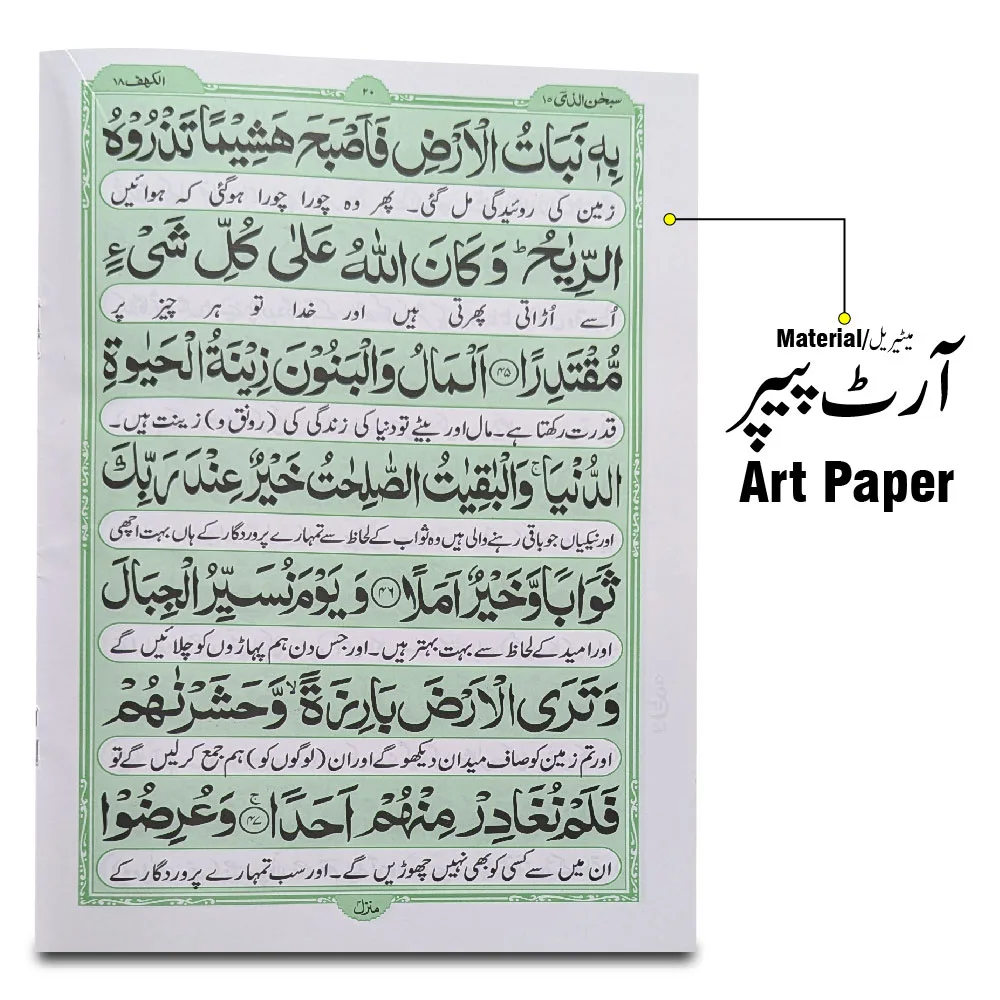 سبحٰن الذی ١٥
٢٠
الکهف ١٨
بِهٖ نَبَاتُ الْاَرْضِ فَاَصْبَحَ هَشِیْمًا تَذْرُوْهُ
زمین کی روئیدگی مل گئی۔ پھر وہ چورا چورا ہوگئی کہ ہوائیں
الرِّیٰحُ ؕ وَ کَانَ اللّٰهُ عَلٰی کُلِّ شَیْءٍ
اُسے اُڑاتی پھرتی ہیں اور خدا تو ہر چیز پر
مُّقْتَدِرًا ﴿۴۵﴾ اَلْمَالُ وَالْبَنُوْنَ زِیْنَةُ الْحَیٰوةِ
قدرت رکھتا ہے۔ مال اور بیٹے تو دنیا کی زندگی کی (رونق و) زینت ہیں۔
الدُّنْیَا ۚ وَالْبٰقِیٰتُ الصّٰلِحٰتُ خَیْرٌ عِنْدَ رَبِّكَ
اور نیکیاں جو باقی رہنے والی ہیں وہ ثواب کے لحاظ سے تمہارے پروردگار کے ہاں بہت اچھی
ثَوَابًا وَّخَیْرٌ اَمَلًا ﴿۴۶﴾ وَ یَوْمَ نُسَیِّرُ الْجِبَالَ
اور امید کے لحاظ سے بہت بہتر ہیں۔ اور جس دن ہم پہاڑوں کو چلائیں گے
وَ تَرَی الْاَرْضَ بَارِزَةً ۙ وَّحَشَرْنٰهُمْ
اور تم زمین کو صاف میدان دیکھو گے اور ان (لوگوں کو) ہم جمع کرلیں گے تو
فَلَمْ نُغَادِرْ مِنْهُمْ اَحَدًا ۚ﴿۴۷﴾ وَعُرِضُوْا
ان میں سے کسی کو بھی نہیں چھوڑیں گے۔ اور سب تمہارے پروردگار کے
منزل
Material/میٹیریل
آرٹ پیپر
Art Paper